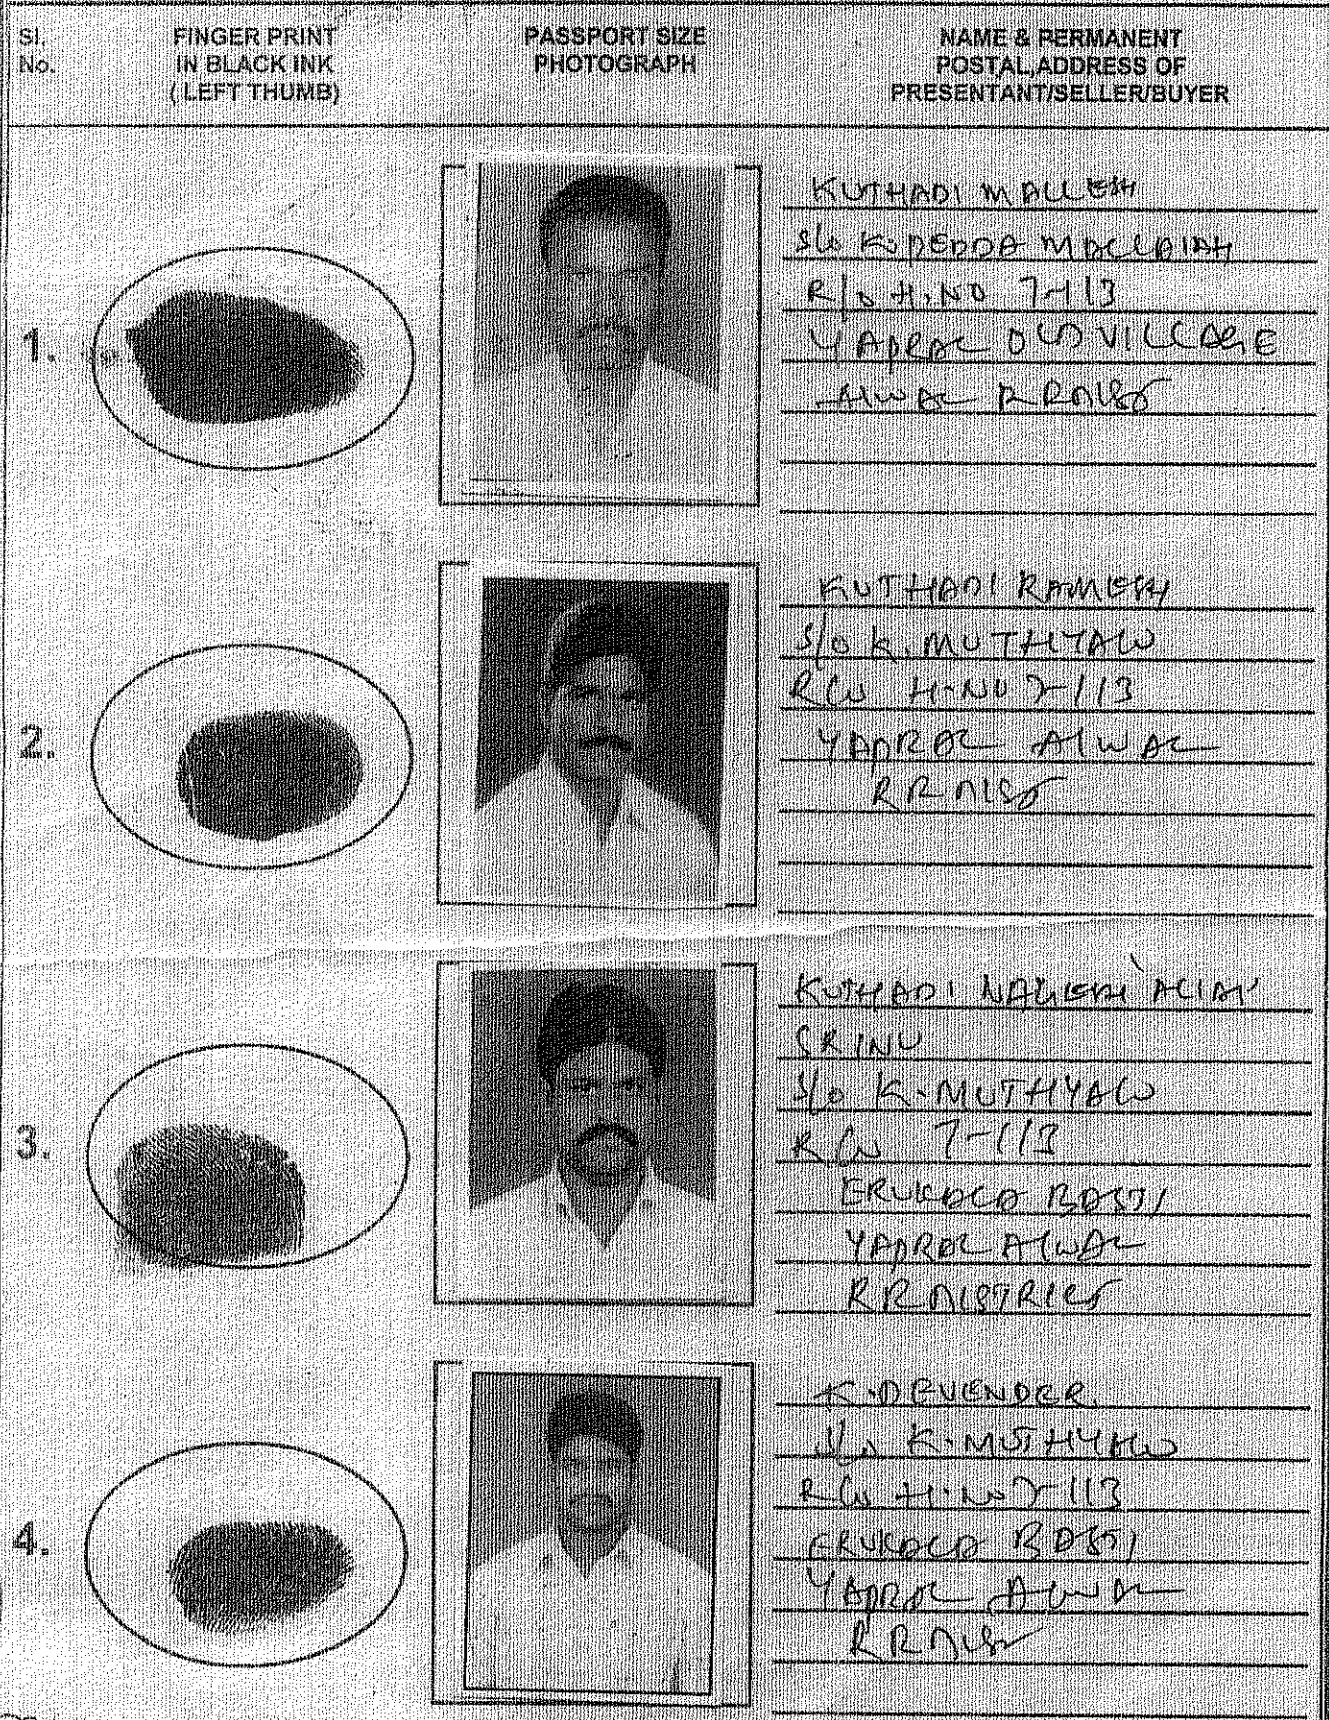 Sl.
No.
FINGER PRINT
IN BLACK INK
( LEFT THUMB)
PASSPORT SIZE
PHOTOGRAPH
NAME & PERMANENT
POSTAL ADDRESS OF
PRESENTANT/SELLER/BUYER
1.
KUTHADI MALLESH
S/o K. PEDDA MALLAIAH
R/o H.NO 7-113
YAPRAL OLD VILLAGE
ALWAL R R DIST
2.
KUTHADI RAMESH
S/o K. MUTHYALU
R/o H.NO 7-113
YAPRAL ALWAL
R R DIST
3.
KUTHADI NAGESH ALIAS
SRINU
S/o K. MUTHYALU
R/o 7-113
ERUKALA BASTI
YAPRAL ALWAL
R R DISTRICT
4.
K. DEVENDER
S/o K. MUTHYALU
R/o H.NO 7-113
ERUKALA BASTI
YAPRAL ALWAL
R R DIST